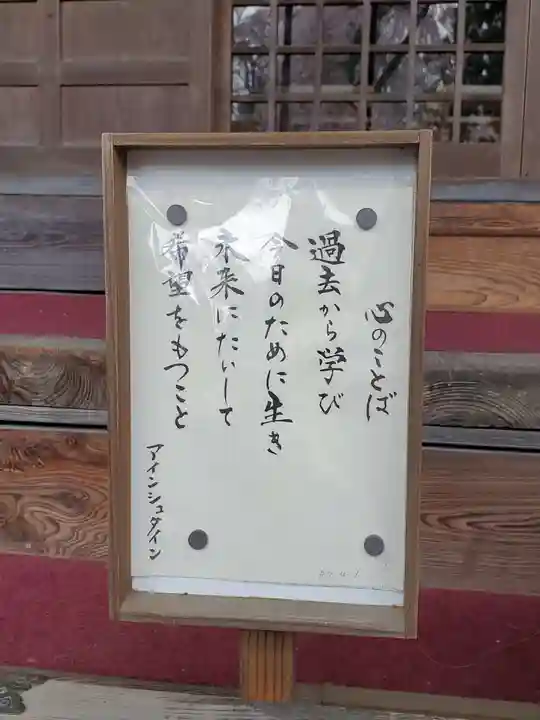 心のことば
過去から学び
今日のために生き
未来にたいして
希望をもつこと
アインシュタイン